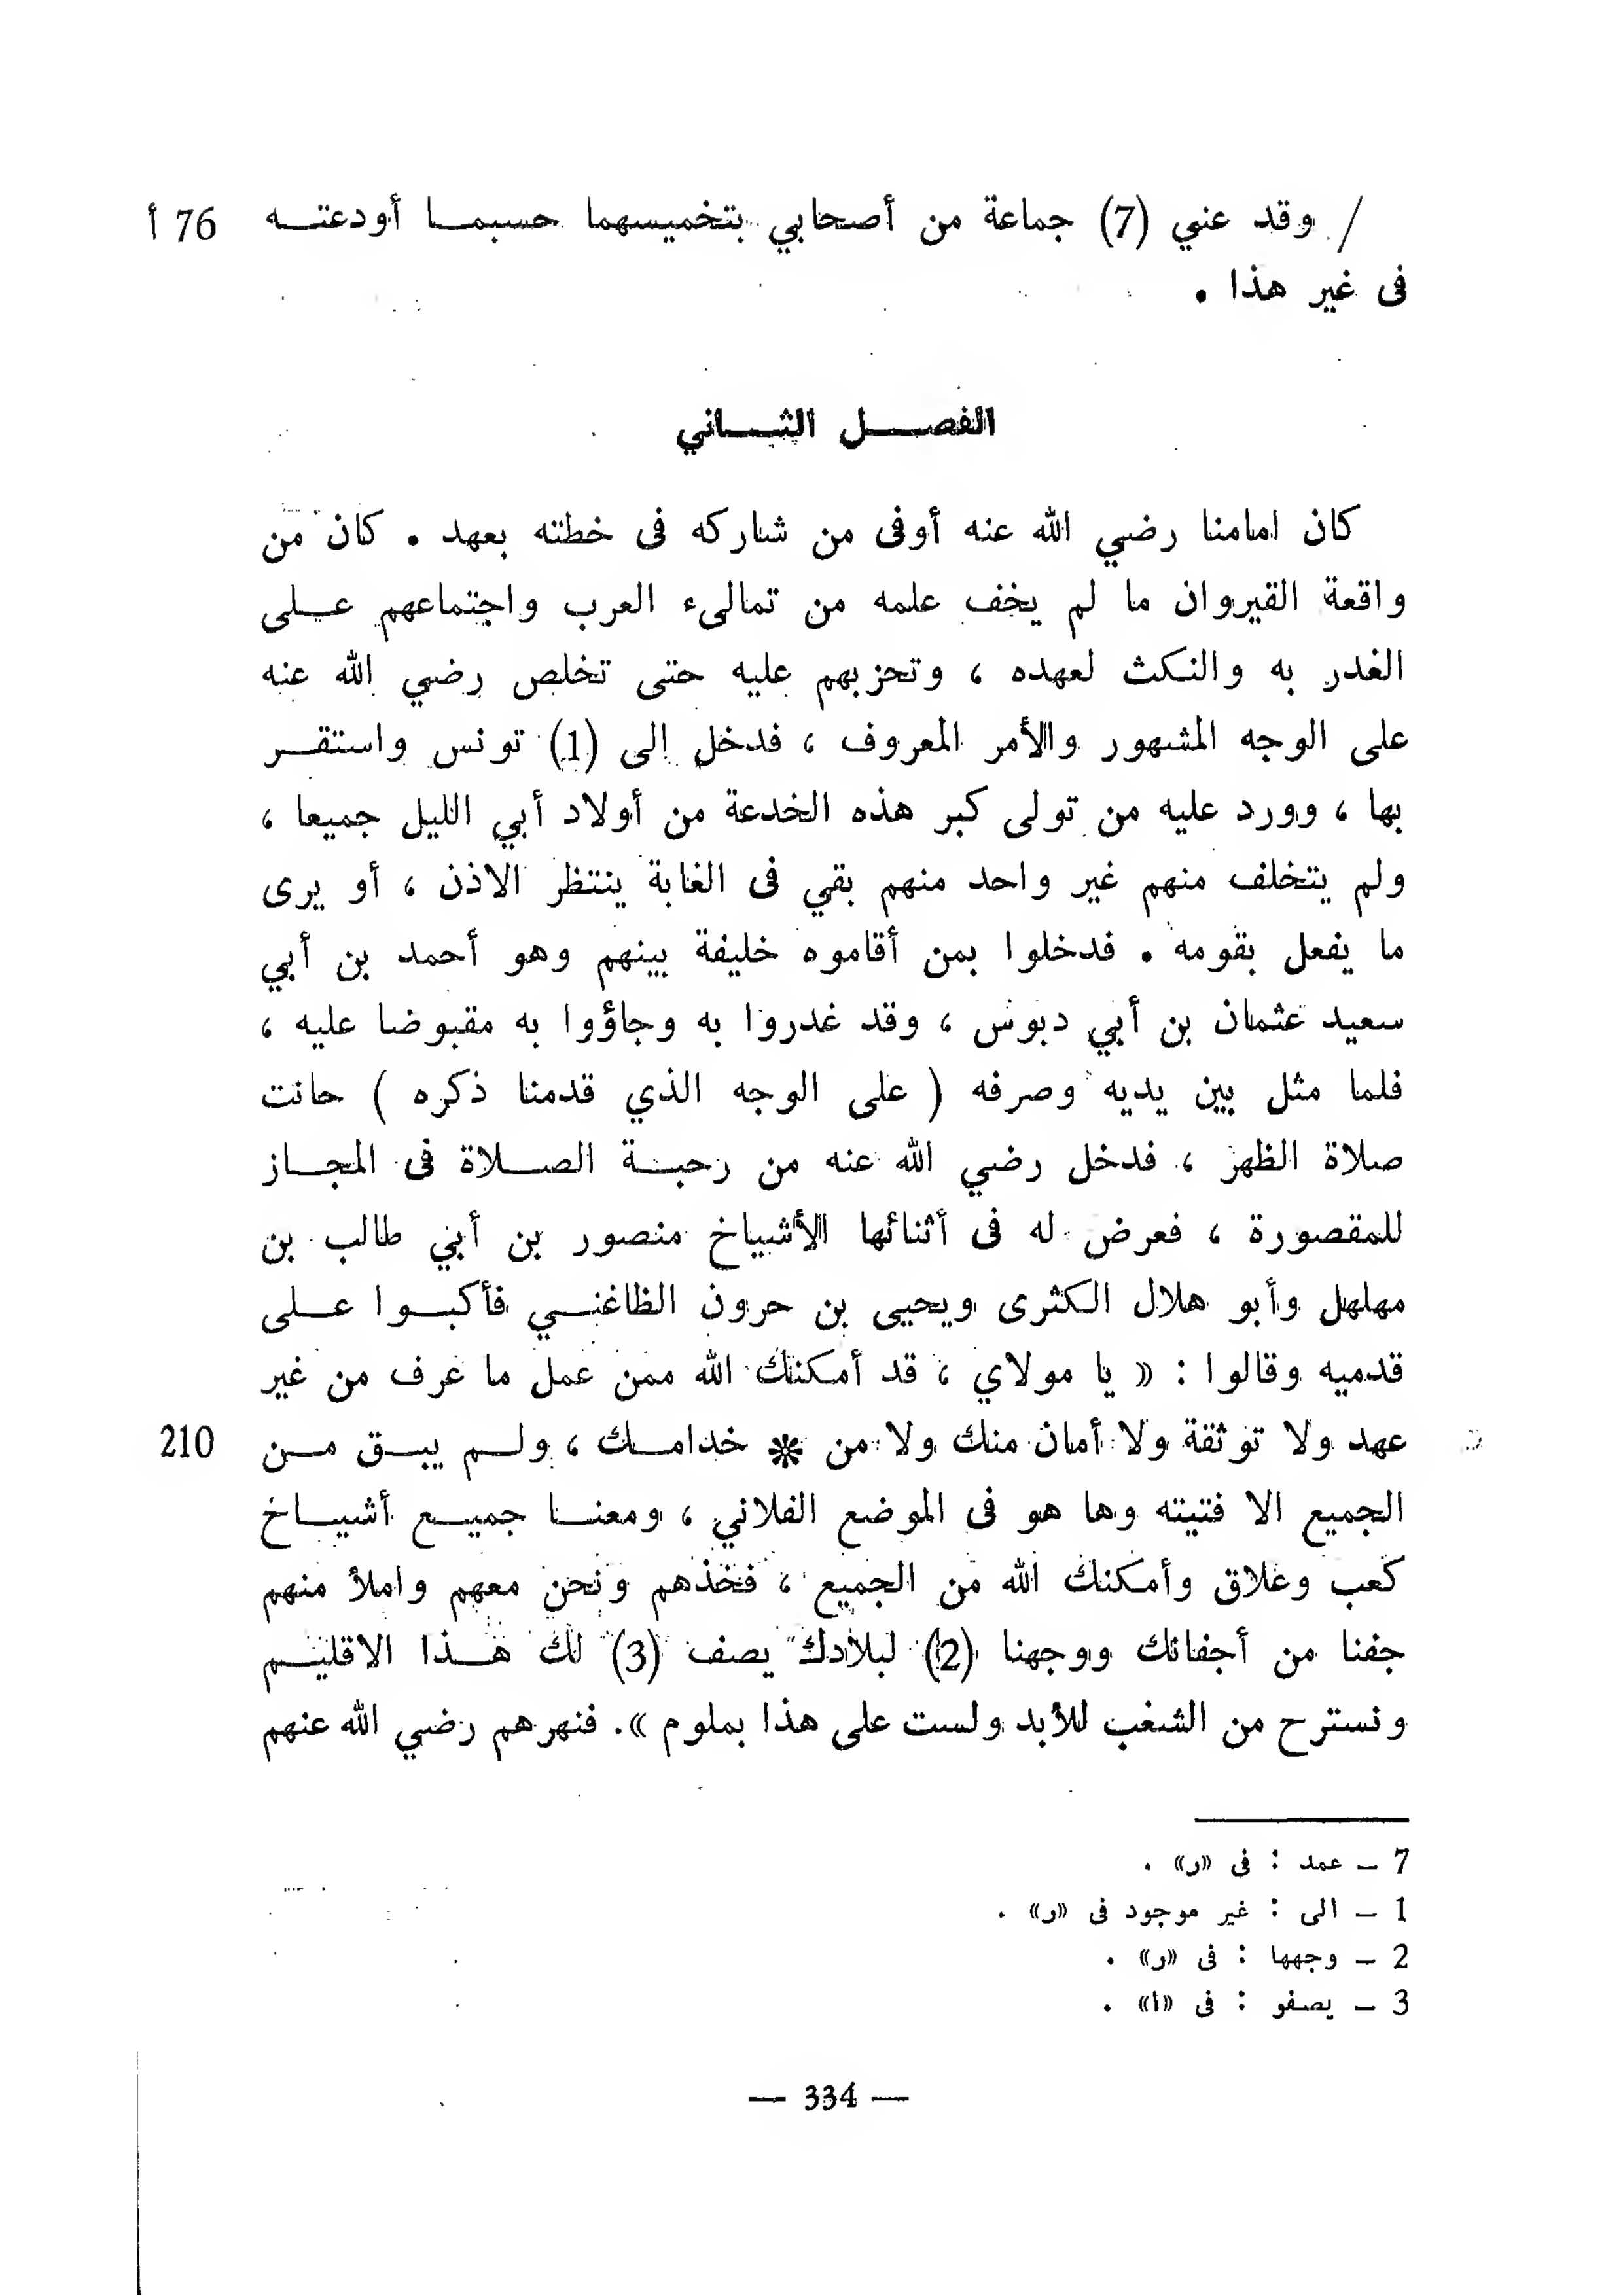 / وقد عني (7) جماعة من أصحابي بتخميسهما حسبما أودعته 76 أ
فى غير هذا .
الفصل الثاني
كان امامنا رضي الله عنه أوفى من شاركه فى خطته بعهد . كان من
واقعة القيروان ما لم يخف علمه من تمالىء العرب واجتماعهم على
الغدر به والنكث لعهده ، وتحزبهم عليه حتى تخلص رضي الله عنه
على الوجه المشهور والأمر المعروف ، فدخل إلى (1) تونس واستقر
بها ، وورد عليه من تولى كبر هذه الخدعة من أولاد أبي الليل جميعا ،
ولم يتخلف منهم غير واحد منهم بقي فى الغابة ينتظر الاذن ، أو يرى
ما يفعل بقومه . فدخلوا بمن أقاموه خليفة بينهم وهو أحمد بن أبي
سعيد عثمان بن أبي دبوس ، وقد غدروا به وجاؤوا به مقبوضا عليه ،
فلما مثل بين يديه وصرفه ( على الوجه الذي قدمنا ذكره ) حانت
صلاة الظهر ، فدخل رضي الله عنه من رحبة الصلاة فى المجاز
للمقصورة ، فعرض له فى أثنائها الأشياخ منصور بن أبي طالب بن
مهلهل وأبو هلال الكثرى ويحيى بن حرون الظاغني فأكبوا على
قدميه وقالوا : « يا مولاي ، قد أمكنك الله ممن عمل ما عرف من غير
عهد ولا توثقة ولا أمان منك ولا من * خدامك ، ولم يبق من 210
الجميع الا فتيته وها هو فى الموضع الفلاني ، ومعنا جميع أشياخ
كعب وعلاق وأمكنك الله من الجميع ، فخذهم ونحن معهم واملأ منهم
جفنا من أجفانك ووجهنا (2) لبلادك يصف (3) لك هذا الاقليم
ونسترح من الشغب للأبد ولست على هذا بملوم ». فنهرهم رضي الله عنهم
7 – عمد : فى «ر» .
1 – الى : غير موجود فى «ر» .
2 – وجهها : فى «ر» .
3 – يصفو : فى «ا» .
— 334 —